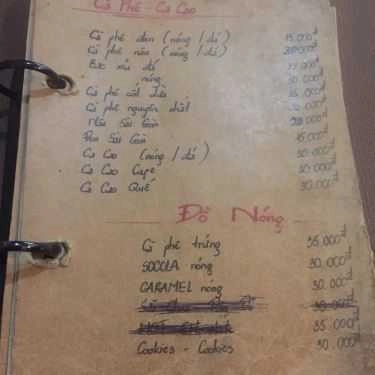 Cà Phê - Ca Cao
Cà phê đen (nóng / đá) 15.000đ
Cà phê nâu (nóng / đá)
Bạc xỉu đá
nóng 30.000đ
Cà phê cốt dừa 35.000đ
Cà phê nguyên chất
Nâu Sài Gòn
Đen Sài Gòn
Ca Cao (nóng / đá) 30.000đ
Ca Cao Café 30.000đ
Ca Cao Quế 30.000đ
Đồ Nóng
Cà phê trứng 35.000đ
SOCOLA nóng 30.000đ
CARAMEL nóng 30.000đ
30.000đ
35.000đ
Cookies - Cookies 30.000đ